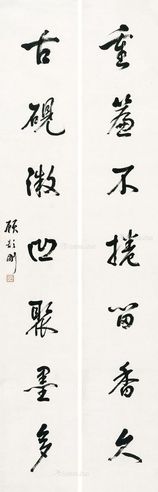 重簾不捲留香久
古硯微凹聚墨多
顧頡剛